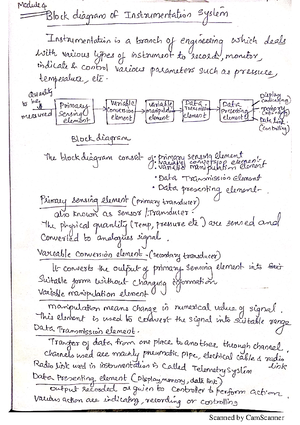 Module 4
Block diagram of Instrumentation System
Instrumentation is a branch of engineering which deals
with various types of instrument to record, monitor,
indicate & control various parameters such as pressure,
temperature, etc.
Quantity to be measured
Primary Sensing element
Variable Conversion element
Variable manipulation element
Data Transmission element
Data Presenting element
Display (indicating)
(controlling)
Block diagram
The block diagram consist of • primary sensing element
• variable conversion element
• variable manipulation element
• Data Transmission element
• Data presenting element
Primary Sensing element (primary tranducer)
also known as sensor / transducer.
The physical quantity (Temp, pressure etc) are sensed and
converted to analogues signal.
Variable conversion element - (secondary tranducer)
It converts the output of primary sensing element into
suitable form without changing information
Variable manipulation element
manipulation means change in numerical value of signal.
This element is used to convert the signal into suitable range
Data Transmission element.
Transfer of data from one place to another through channel.
channels used are mainly pneumatic pipe, electrical cable & radio link
Radio link used in instrumentation is called Telemetry System
Data Presenting element (Display, memory, data link)
output recorded or given to Controller to perform action.
Various action are indicating, recording or controlling
Scanned by CamScanner